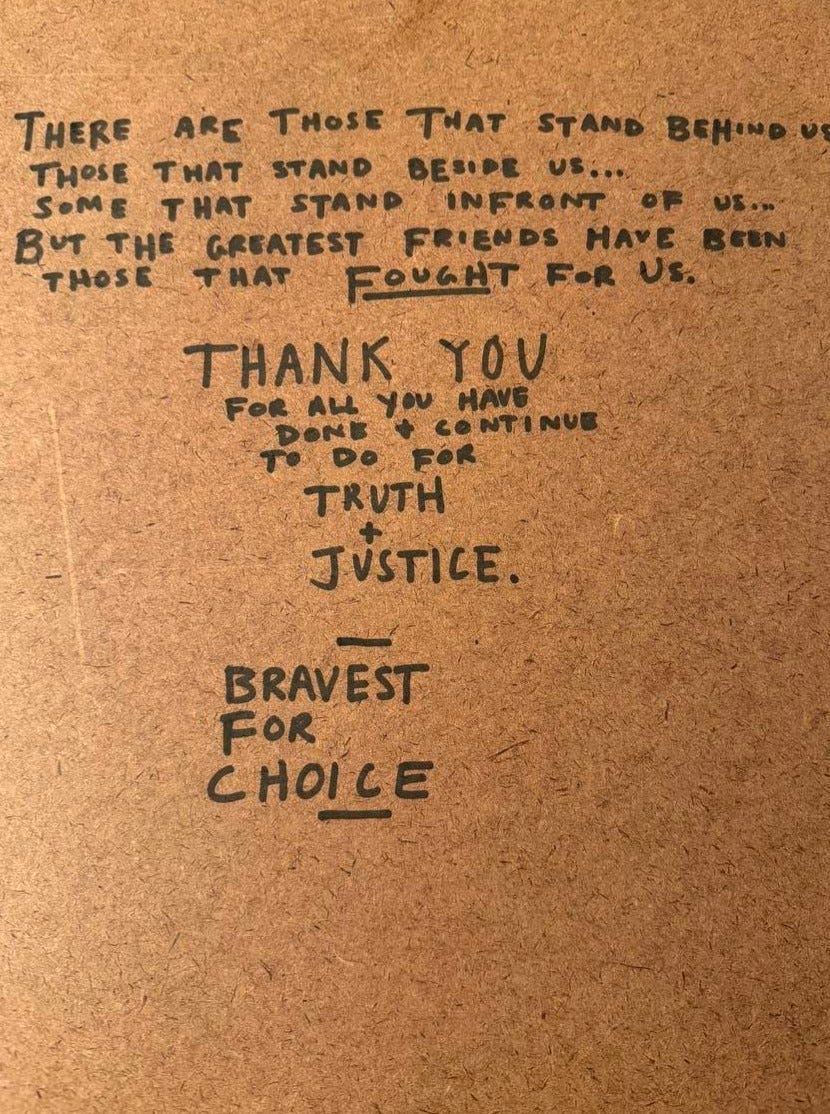 THERE ARE THOSE THAT STAND BEHIND US
THOSE THAT STAND BESIDE US...
SOME THAT STAND INFRONT OF US...
BUT THE GREATEST FRIENDS HAVE BEEN
THOSE THAT FOUGHT FOR US.
THANK YOU
FOR ALL YOU HAVE
DONE + CONTINUE
TO DO FOR
TRUTH
+
JUSTICE.
—
BRAVEST
FOR
CHOICE